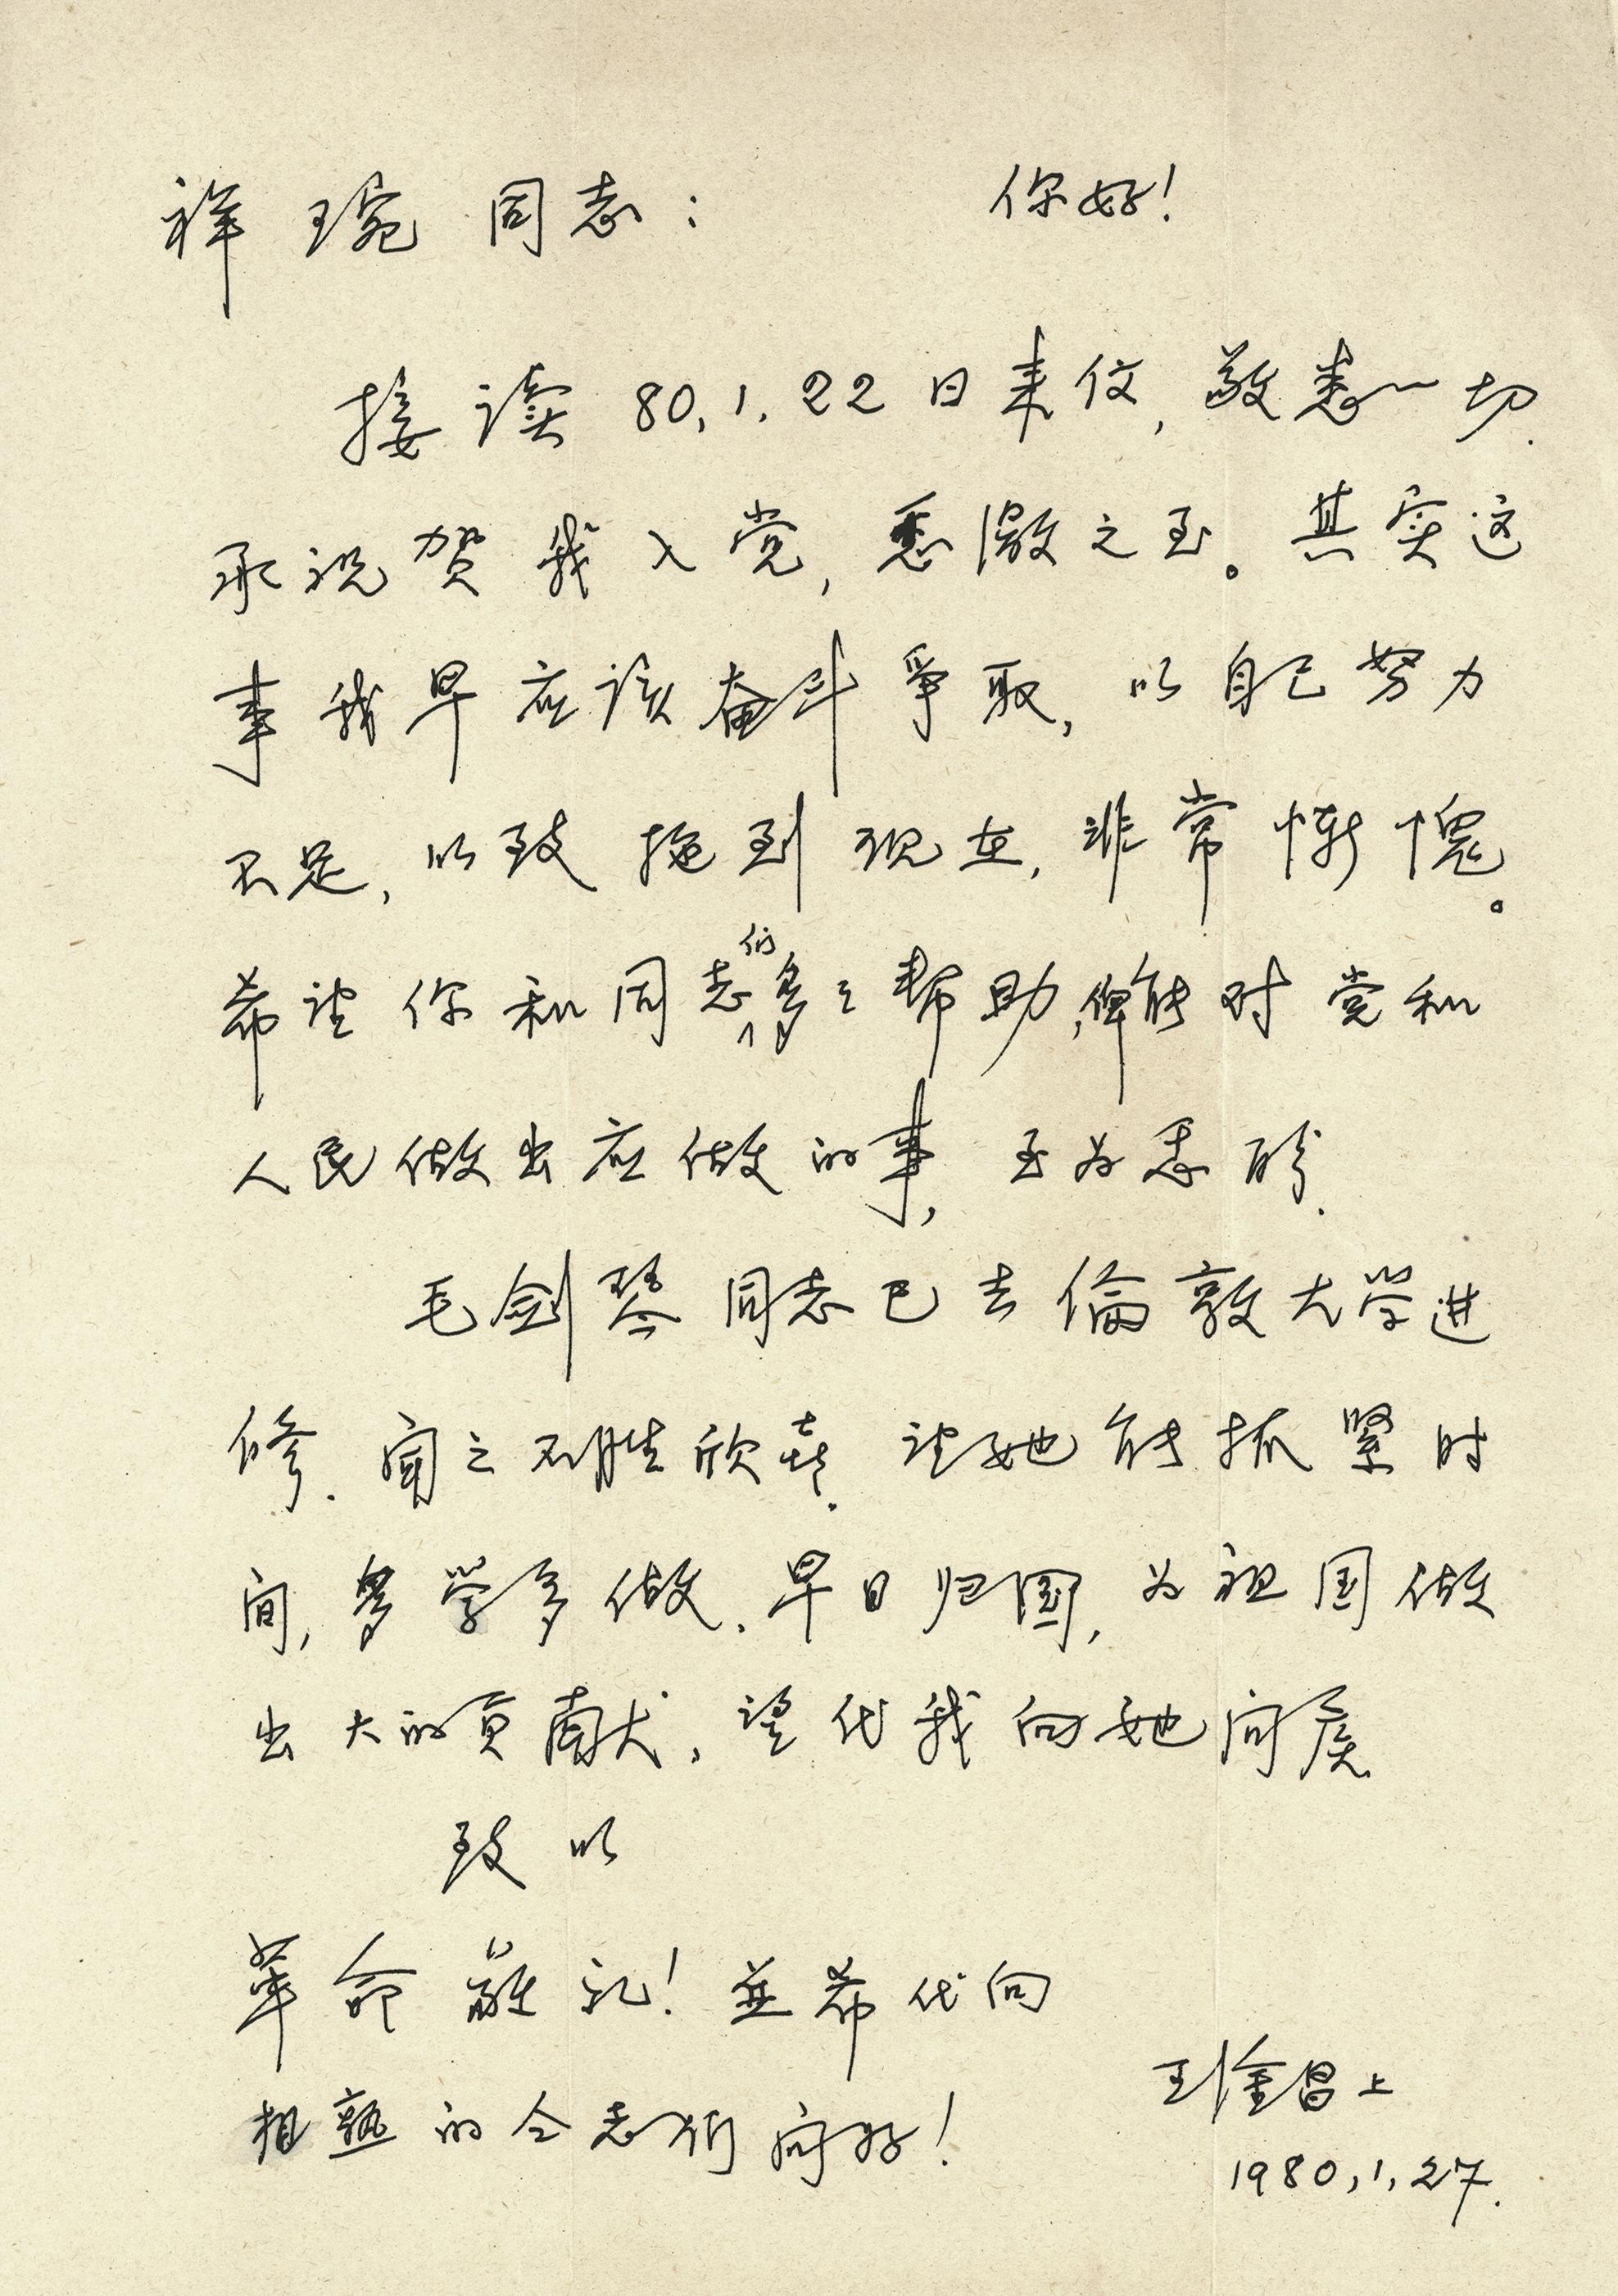 祥琬同志： 你好！
接读80.1.22日来信，敬悉一切.
承祝贺我入党，感激之至。其实这
事我早应该奋斗争取，以自己努力
不足，以致拖到现在，非常惭愧。
希望你和同志们多多帮助，俾能对党和
人民做出应做的事，至为恳盼.
毛剑琴同志已去倫敦大学进
修.闻之不胜欣喜.望她能抓紧时
间，多学多做.早日归国，为祖国做
出大的贡献，望代我向她问候
致以
革命敬礼！並希代向
相熟的仝志们问好！
王淦昌上
1980.1.27.